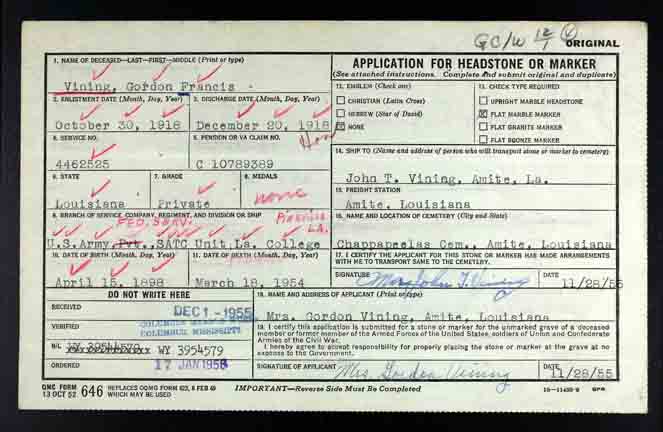 GC/W 12/1
ORIGINAL
1. NAME OF DECEASED—LAST—FIRST—MIDDLE (Print or type)
Vining, Gordon Francis
2. ENLISTMENT DATE (Month, Day, Year)
3. DISCHARGE DATE (Month, Day, Year)
October 30, 1918
December 20, 1918
Hon
4. SERVICE NO.
5. PENSION OR VA CLAIM NO.
4462525
C 10789389
6. STATE
7. GRADE
8. MEDALS
Louisiana
Private
none
9. BRANCH OF SERVICE, COMPANY, REGIMENT, AND DIVISION OR SHIP
FED. SERV.
LA.
U.S.Army, Pvt., SATC Unit La. College
10. DATE OF BIRTH (Month, Day, Year)
11. DATE OF DEATH (Month, Day, Year)
April 15, 1898
March 18, 1954
DO NOT WRITE HERE
RECEIVED
DEC 1 - 1955
VERIFIED
COLUMBUS MISSISSIPPI
B/L
WY 3954579
WY 3954579
ORDERED
17 JAN 1956
APPLICATION FOR HEADSTONE OR MARKER
(See attached instructions. Complete and submit original and duplicate)
12. EMBLEM (Check one)
CHRISTIAN (Latin Cross)
HEBREW (Star of David)
NONE
13. CHECK TYPE REQUIRED
UPRIGHT MARBLE HEADSTONE
FLAT MARBLE MARKER
FLAT GRANITE MARKER
FLAT BRONZE MARKER
14. SHIP TO (Name and address of person who will transport stone or marker to cemetery)
John T. Vining, Amite, La.
15. FREIGHT STATION
Amite, Louisiana
16. NAME AND LOCATION OF CEMETERY (City and State)
Chappapeelas Cem., Amite, Louisiana
17. I CERTIFY THE APPLICANT FOR THIS STONE OR MARKER HAS MADE ARRANGEMENTS WITH ME TO TRANSPORT SAME TO THE CEMETERY.
SIGNATURE
John T. Vining
11/28/55
18. NAME AND ADDRESS OF APPLICANT (Print or type)
Mrs. Gordon Vining, Amite, Louisiana
19. I certify this application is submitted for a stone or marker for the unmarked grave of a deceased
member or former member of the Armed Forces of the United States, soldiers of Union and Confederate
Armies of the Civil War.
I hereby agree to accept responsibility for properly placing the stone or marker at the grave at no
expense to the Government.
SIGNATURE
Mrs. Gordon Vining
11/28/55
QMC FORM
13 OCT 52
646
REPLACES OQMG FORM 623, 8 FEB 49
WHICH MAY BE USED
IMPORTANT—Reverse Side Must Be Completed
GPO